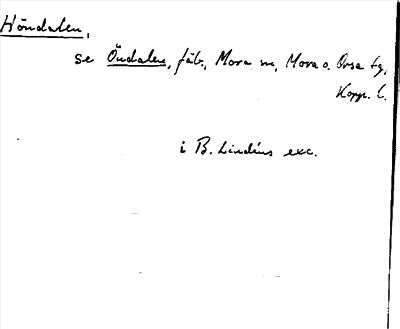 Höndalen,
se Öndalen, fäb., Mora sn, Mora o. Orsa tg,
Kopp. l.
i B. Lindéns exc.